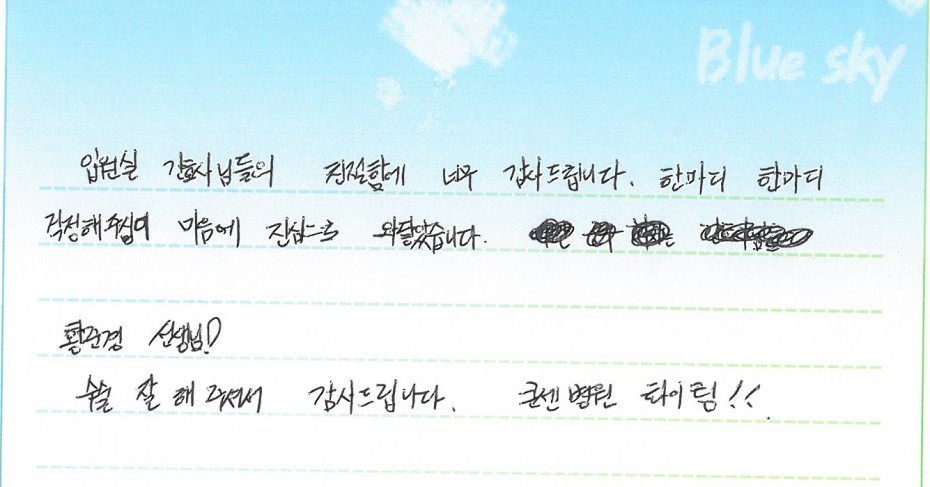 Blue sky
입원실 간호사님들의 친절함에 너무 감사드립니다. 한마디 한마디
걱정해주심이 마음에 진심으로 와닿았습니다.
황준경 선생님!
수술 잘 해주셔서 감사드립니다. 굿센병원 화이팅!!